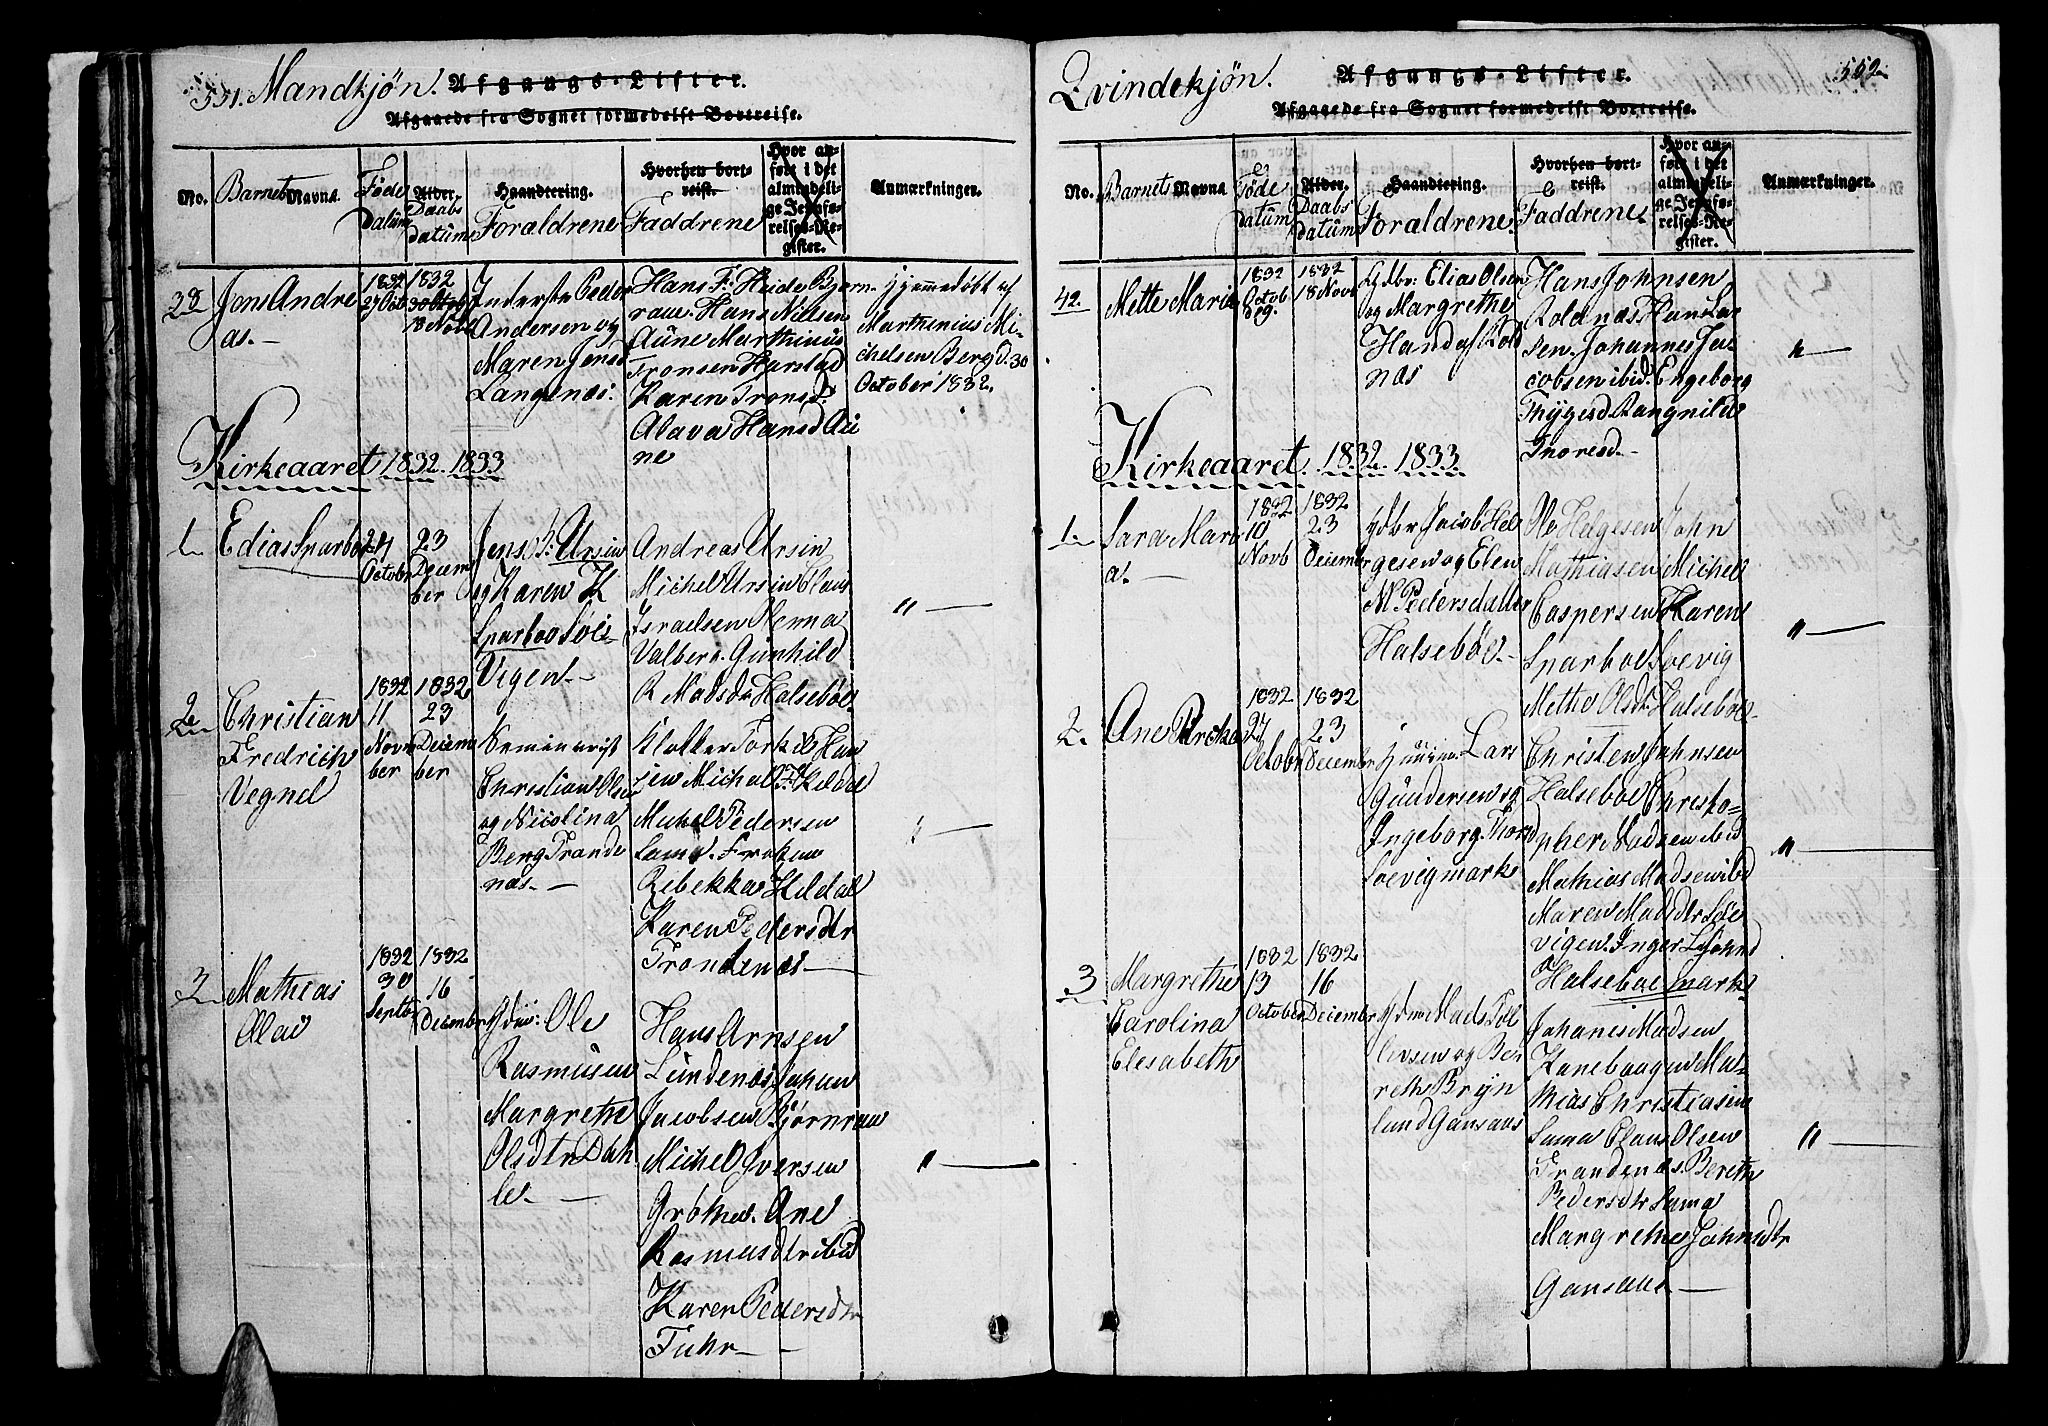 551. Mandkjøn. Afgangs-Lister.
Afgaaede fra Sognet formedelst Bortreise.
No.
Barnets Navne.
Føde
datum
Alder.
Daabs
datum
Haandtering.
Foraldrene
Hvorhen bort-
reist.
Faddrene
Hvor an-
ført i det
almindeli-
ge Jevnfø-
relses-Re-
gister.
Anmærkninger.
Jens Andre
as.-
1832
27 Octb
1832
18 Novb
Inderste Peder
Andersen og
Maren Jensd
Langenæs:
Hans F: Heide Bjørn
raae. Hans Nilsen
Aune Marthinus
Tronsen Harstad
Karen Tronsd.
Alava Hansd Au
ne
Hjemmedøbt af
Marthenius Mi-
chelsen Berg d. 30
October 1832.
Kirkeaaret 1832. 1833
1.
Edias Sparboe
24
Octobr
23
Decem
ber
Jens B: Ursin
og Karen K
Sparboe Søe-
Vigen.-
Andreas Ursin
Michel Ursin Claus
Israelsen Henna
Valberg. Gunhild
R Madsdr Halsebøe
"
2.
Christian
Fredrich
Vegnel
1832
11
Novm
ber
1832
23
Decem
ber
Seminarist
Christian Olsen
og Nicolina
Berg Tronde
næs.-
Klokker Torkil Han
sen Michal F. Hildal
Michel Pedersen
Sama. Frøken
Rebekka Hildal
Karen Pedersdtr
Trondenæs
"
3
Mathias
Olai
1832
30
Septb
1832
16
Decembr
Gdm: Ole
Rasmusen
Margrethe
Olsdtr Dah
le.-
Hans Arnsen
Lundenæs Johan
Jacobsen Bjørnraae
Michel Iversen
Grøtna. Ane
Rasmusdtr ibid
Karen Pedersdtr
Fuhr-
"
Qvindekjøn. Afgangs-Lister. 552
Afgaaede fra Sognet formedelst Bortreise.
No.
Barnets Navne
Føde
datum
Alder.
Daabs
datum
Haandtering.
Foraldrene
Hvorhen bort-
reist.
Faddrene
Hvor an-
ført i det
almindeli-
ge Jevnfø-
relses-Re-
gister.
Anmærkninger.
42.
Mette Maria
1832
Octob
1832
18 Novb
Gdbr: Elias Olsen
og Margrethe
Hansd af Rold
næs
Hans Johnsen
Roldnæs Hans La
sen. Johannes Ja
cobsen ibid. Engeborg
Thygesd Rangnild
Thoresd.-
"
Kirkeaaret. 1832. 1833
1.
Sara Mari
a.-
1832
10
Novb
1832
23
Decembr
Gdbr Jacob Hel
gesen og Elen
M Pedersdatter
Halsebøe.-
Ole Helgesen John
Mathiasen Michel
Caspersen Karen
Sparboe Soevig
Methe Olsdtr Halsebøe
"
2.
Ane Birthe
1832
27
Octobr
1832
23
Decembr
Huusm Lars
Gundersen og
Ingeborg Thord
Soevigmark
Christen Johnsen
Halsebøe Christo-
pher Madsen ibid
Mathias Madsen ibid
Maren Madsdtr Søe
vigen. Inger L Johnsd
Halsebøemark
"
3
Margrethe
Carolina
Elesabeth
1832
13
October
1832
16
Decembr
Gdm Mads Tol
levsen og Ber
reth Bryn
lund Gansaas
Johanes Madsen
Kanebaagen Ma-
thias Christiasen
Sama Claus Olsen
Trondenæs. Bereth
Pedersdtr Sama
Margrethe Johnsdtr
Gansaas.-
"